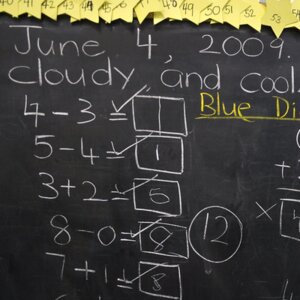 40 41 42 43 49 50 51 52 53 54
June 4, 2009.
cloudy and cool
Blue Di
4 - 3 = 1
5 - 4 = 1
3 + 2 = 5
8 - 0 = 8
12
7 + 1 = 8
+
×